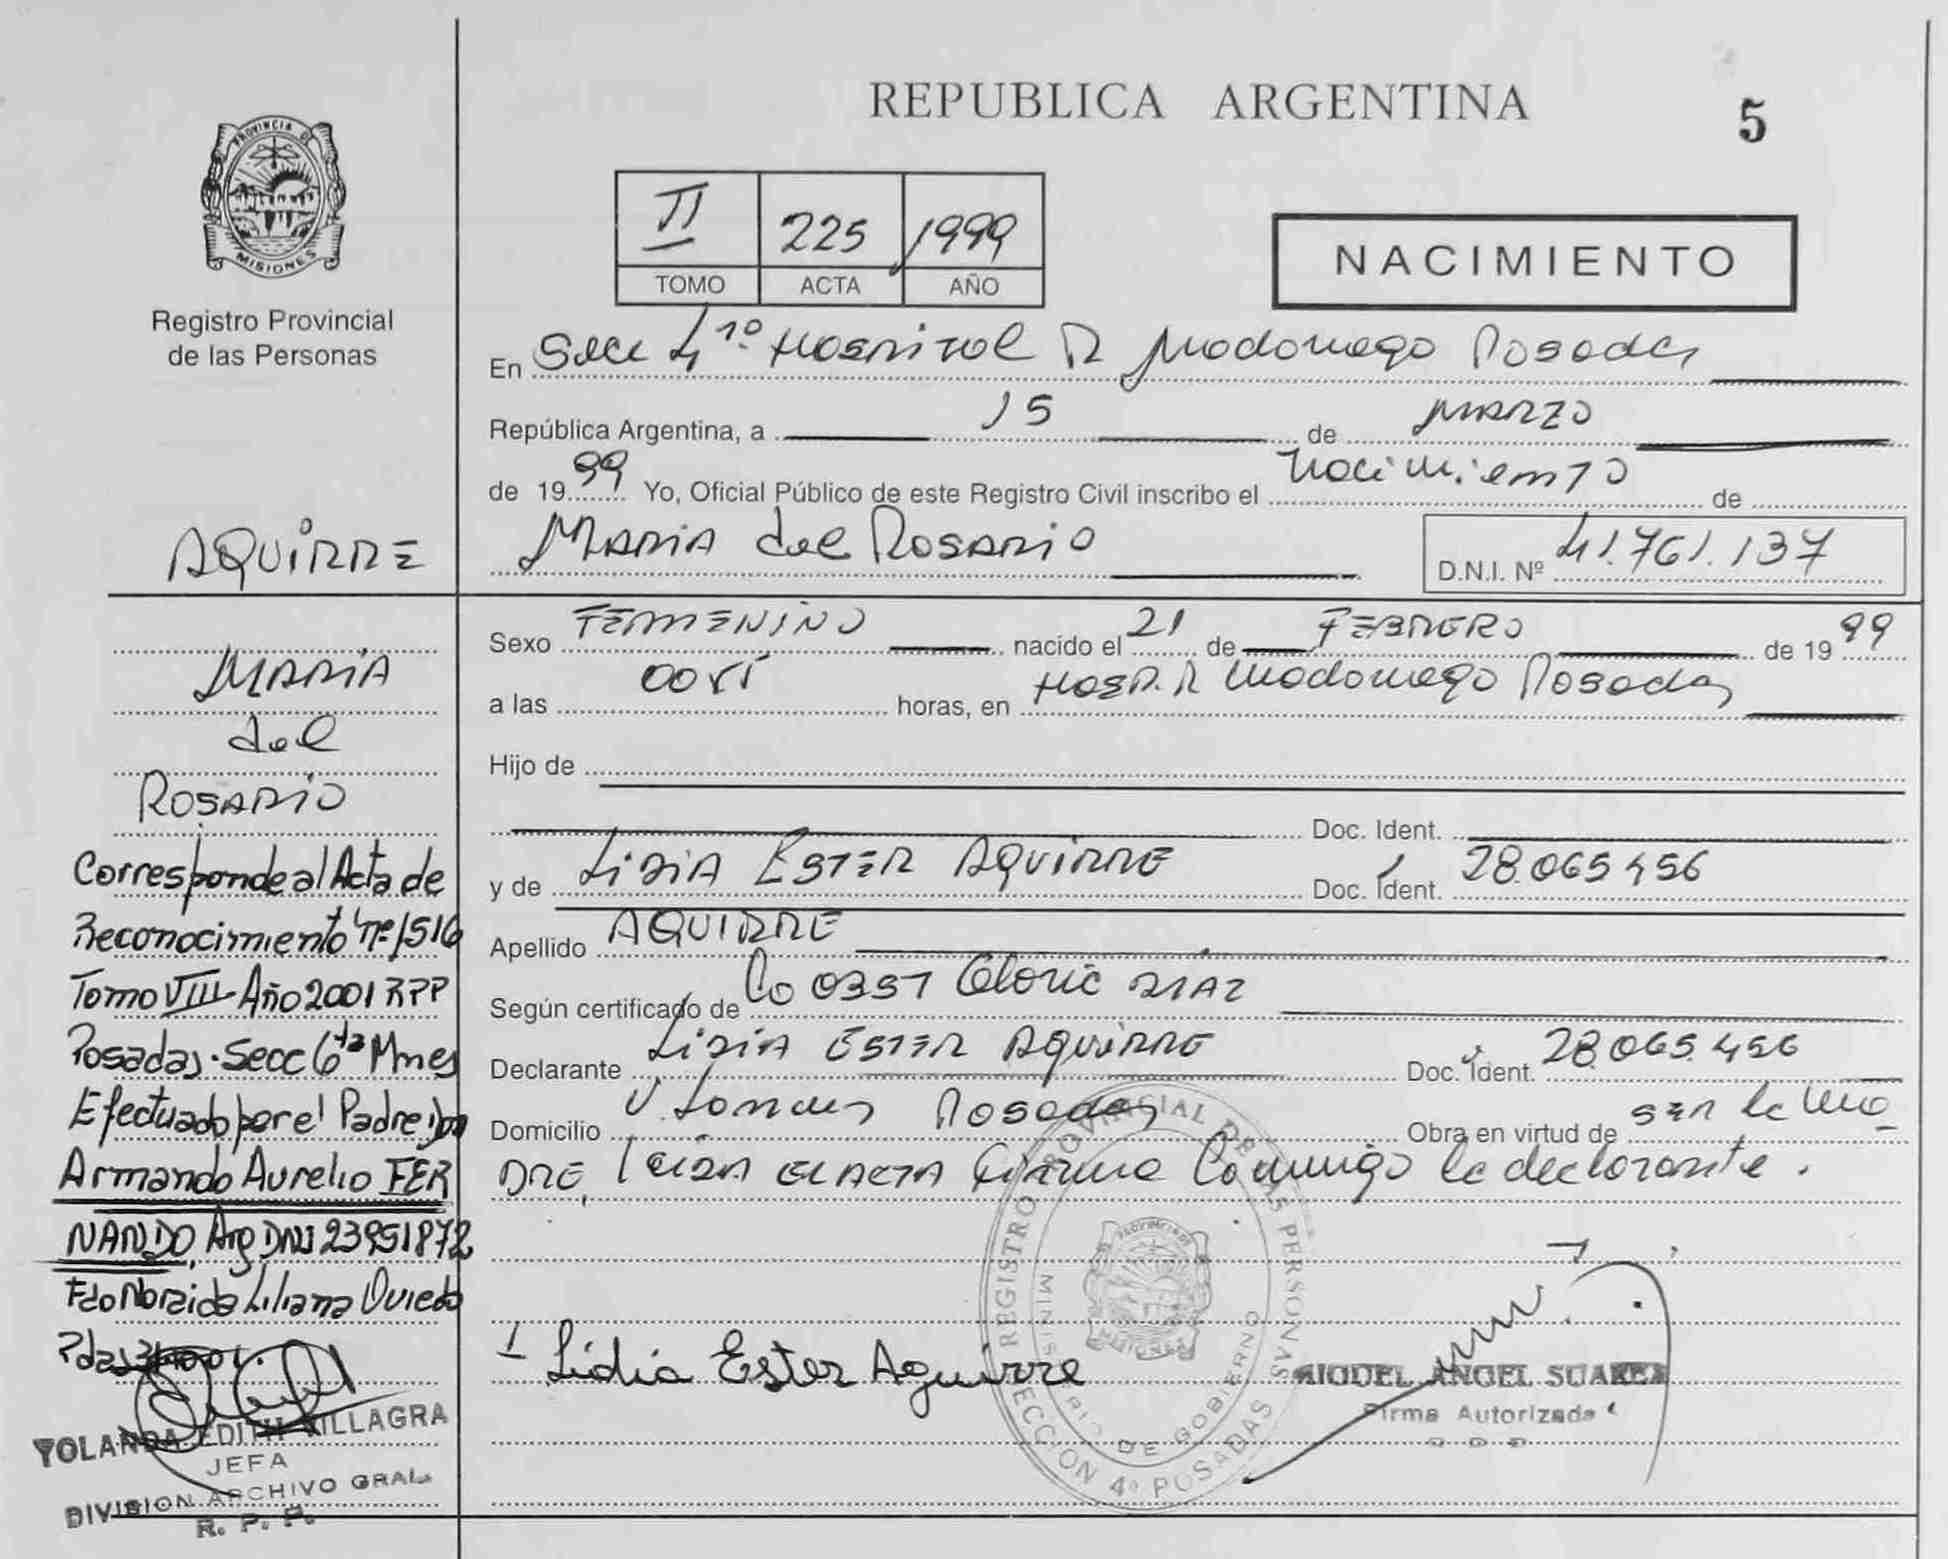 REPUBLICA ARGENTINA
5
PROVINCIA DE
MISIONES
Registro Provincial
de las Personas
II 225 1999
TOMO ACTA AÑO
NACIMIENTO
En Secc 4º Hospital R Madariaga Posadas
República Argentina, a 15 de MARZO
de 1999 Yo, Oficial Público de este Registro Civil inscribo el Nacimiento de
MARIA del ROSARIO D.N.I. Nº 41.761.137
Sexo FEMENINO nacido el 21 de FEBRERO de 1999
a las horas, en HOSP. R Madariaga Posadas
Hijo de
Doc. Ident.
y de LIDIA ESTER AQUIRRE Doc. Ident. 28.065.456
Apellido AQUIRRE
Según certificado de Co 0351 Gloria DIAZ
Declarante LIDIA ESTER AQUIRRE Doc. Ident. 28.065.456
Domicilio Posadas Obra en virtud de ser la ma
DRE, Leida el ACTA Firma Conmigo la declarante.
AQUIRRE
MARIA
del
ROSARIO
Corresponde al Acta de
Reconocimiento Nº 1516
Tomo VIII-Año 2001 RPP
Posadas-Secc 6ta Mnes
Efectuado por el Padre
Armando Aurelio FER
NANDO, Arg DNI 23951872
Fdo Noraida Liliana Oviedo
Pdas
YOLANDA EDITH VILLAGRA
JEFA
DIVISION ARCHIVO GRAL.
R. P. P.
Lidia Ester Aguirre
REGISTRO PROVINCIAL DE LAS PERSONAS
MINISTERIO DE GOBIERNO
SECCION 4º POSADAS
MISIONES
MIGUEL ANGEL SUAREZ
Firma Autorizada